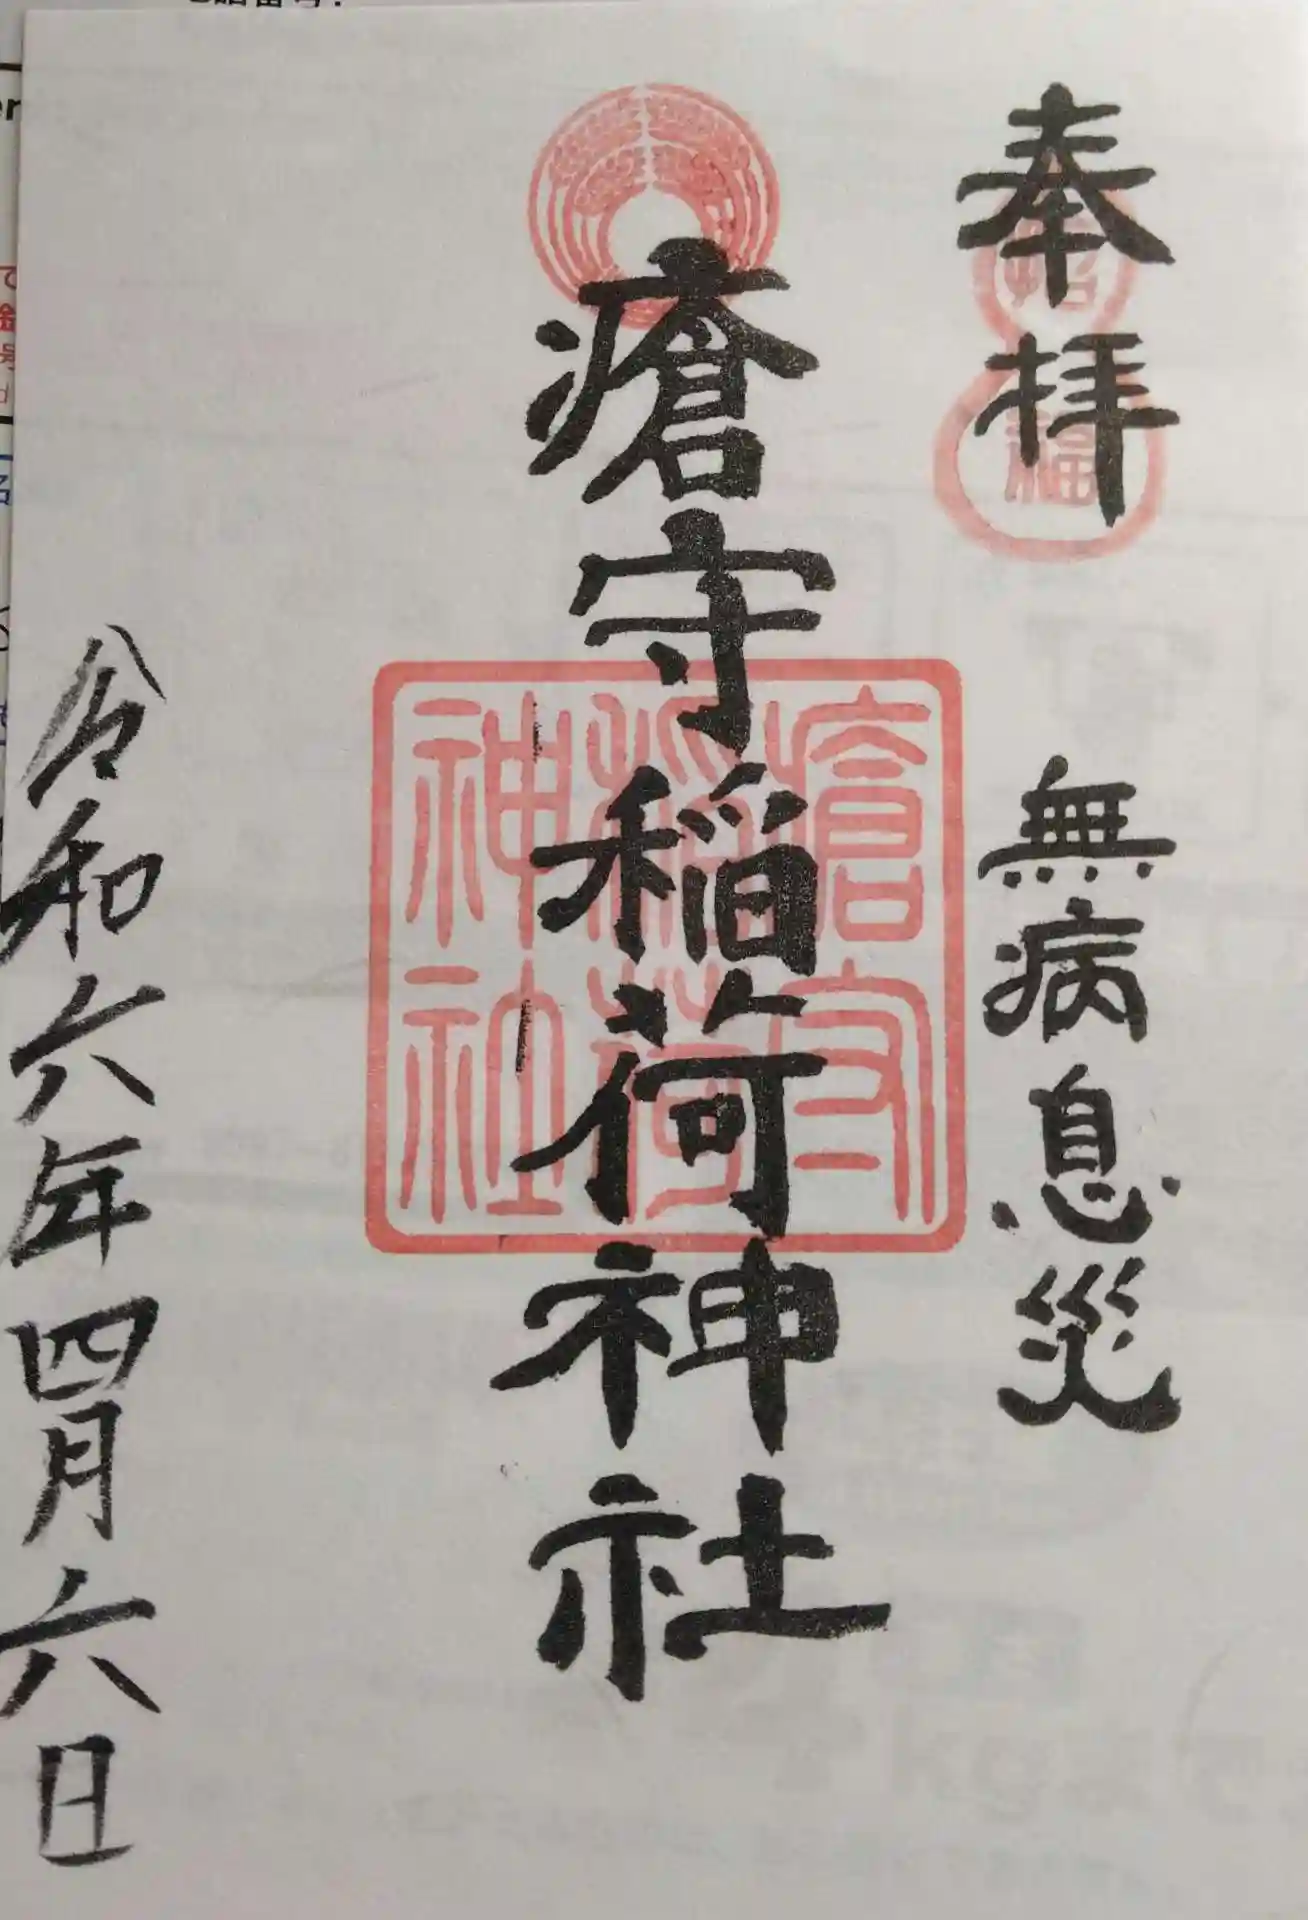 奉拝
無病息災
招福
瘡守稲荷神社
瘡守
稲荷
神社
令和六年四月六日